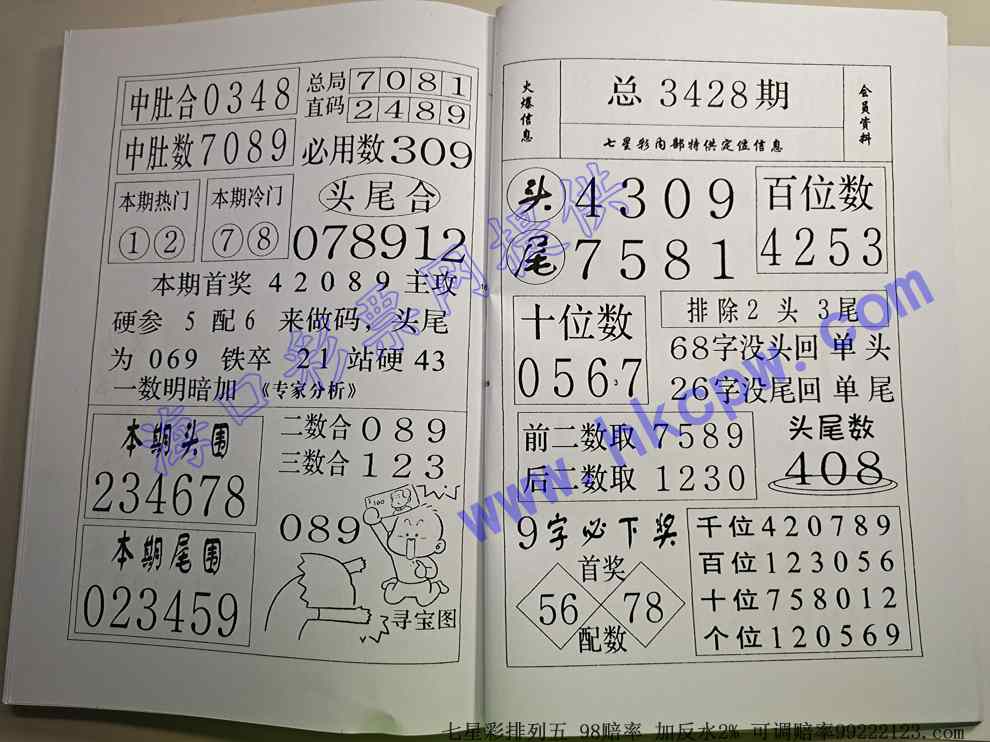 中肚合0348
总局7081
直码2489
中肚数7089
必用数309
本期热门
①②
本期冷门
⑦⑧
头尾合
078912
本期首奖 42089 主攻
硬参 5 配6 来做码，头尾
为 069 铁卒 21 站硬 43
一数明暗加 《专家分析》
本期头围
234678
二数合 089
三数合 123
本期尾围
023459
089
寻宝图
火爆信息
总 3428期
七星彩内部特供定位信息
会员资料
头 4309
尾 7581
百位数
4253
十位数
0567
排除2 头 3尾
68字没头回 单 头
26字没尾回 单 尾
前二数取 7589
后二数取 1230
头尾数
408
9字必下奖
首奖
56 78
配数
千位420789
百位123056
十位758012
个位120569
海口彩票网提供
www.hkcpw.com
七星彩排列五 98赔率 加反水2% 可调赔率99222123.com